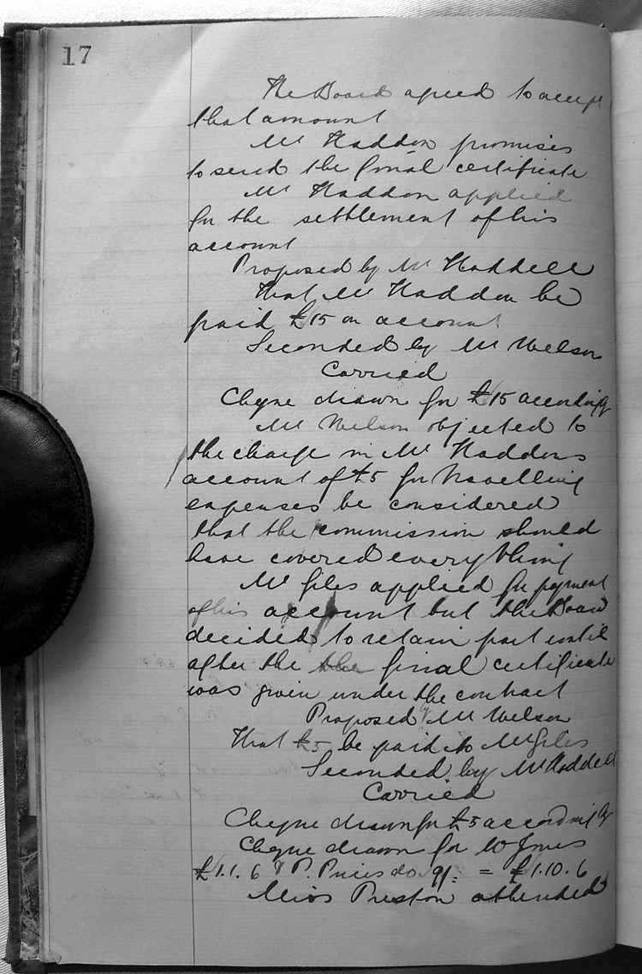 17
The Board agreed to accept
that amount
Mr Haddon promises
to send the final certificate
Mr Haddon applied
for the settlement of his
account
Proposed by Mr Haddell
that Mr Haddon be
paid £15 on account
Seconded by Mr Welson
Carried
Cheque drawn for £15 accordingly
Mr Welson objected to
the charge in Mr Haddons
account of £5 for travelling
expenses he considered
that the commission should
have covered everything
Mr Giles applied for payment
of his account but the Board
decided to retain part until
after the the final certificate
was given under the contract
Proposed by Mr Welson
That £5 be paid to Mr Giles
Seconded by Mr Haddell
Carried
Cheque drawn for £5 accordingly
Cheque drawn for W Jones
£1.1.6 & P. Prices do 9/. = £1.10.6
Miss Preston attended